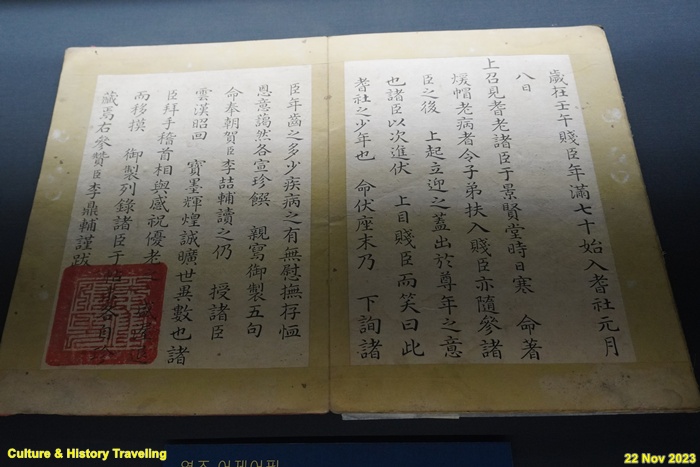 歲在壬午賤臣年滿七十始入耆社元月
八日
上召見耆老諸臣于景賢堂時日寒 命著
煖帽老病者令子弟扶入賤臣亦隨參諸
臣之後 上起立迎之蓋出於尊年之意
也諸臣以次進伏 上目賤臣而笑曰此
耆社之少年也 命伏座末乃 下詢諸
臣年齒之多少疾病之有無慰撫存恤
恩意藹然各宣珍饌 親寫御製五句
命奉朝賀臣李喆輔讀之仍 授諸臣
雲漢昭回 寶墨輝煌誠曠世異數也諸
臣拜手稽首相與感祝優老
而移摸 御製列錄諸臣于
藏焉右參贊臣李鼎輔謹跋
영조 어제어필
Culture & History Traveling
22 Nov 2023